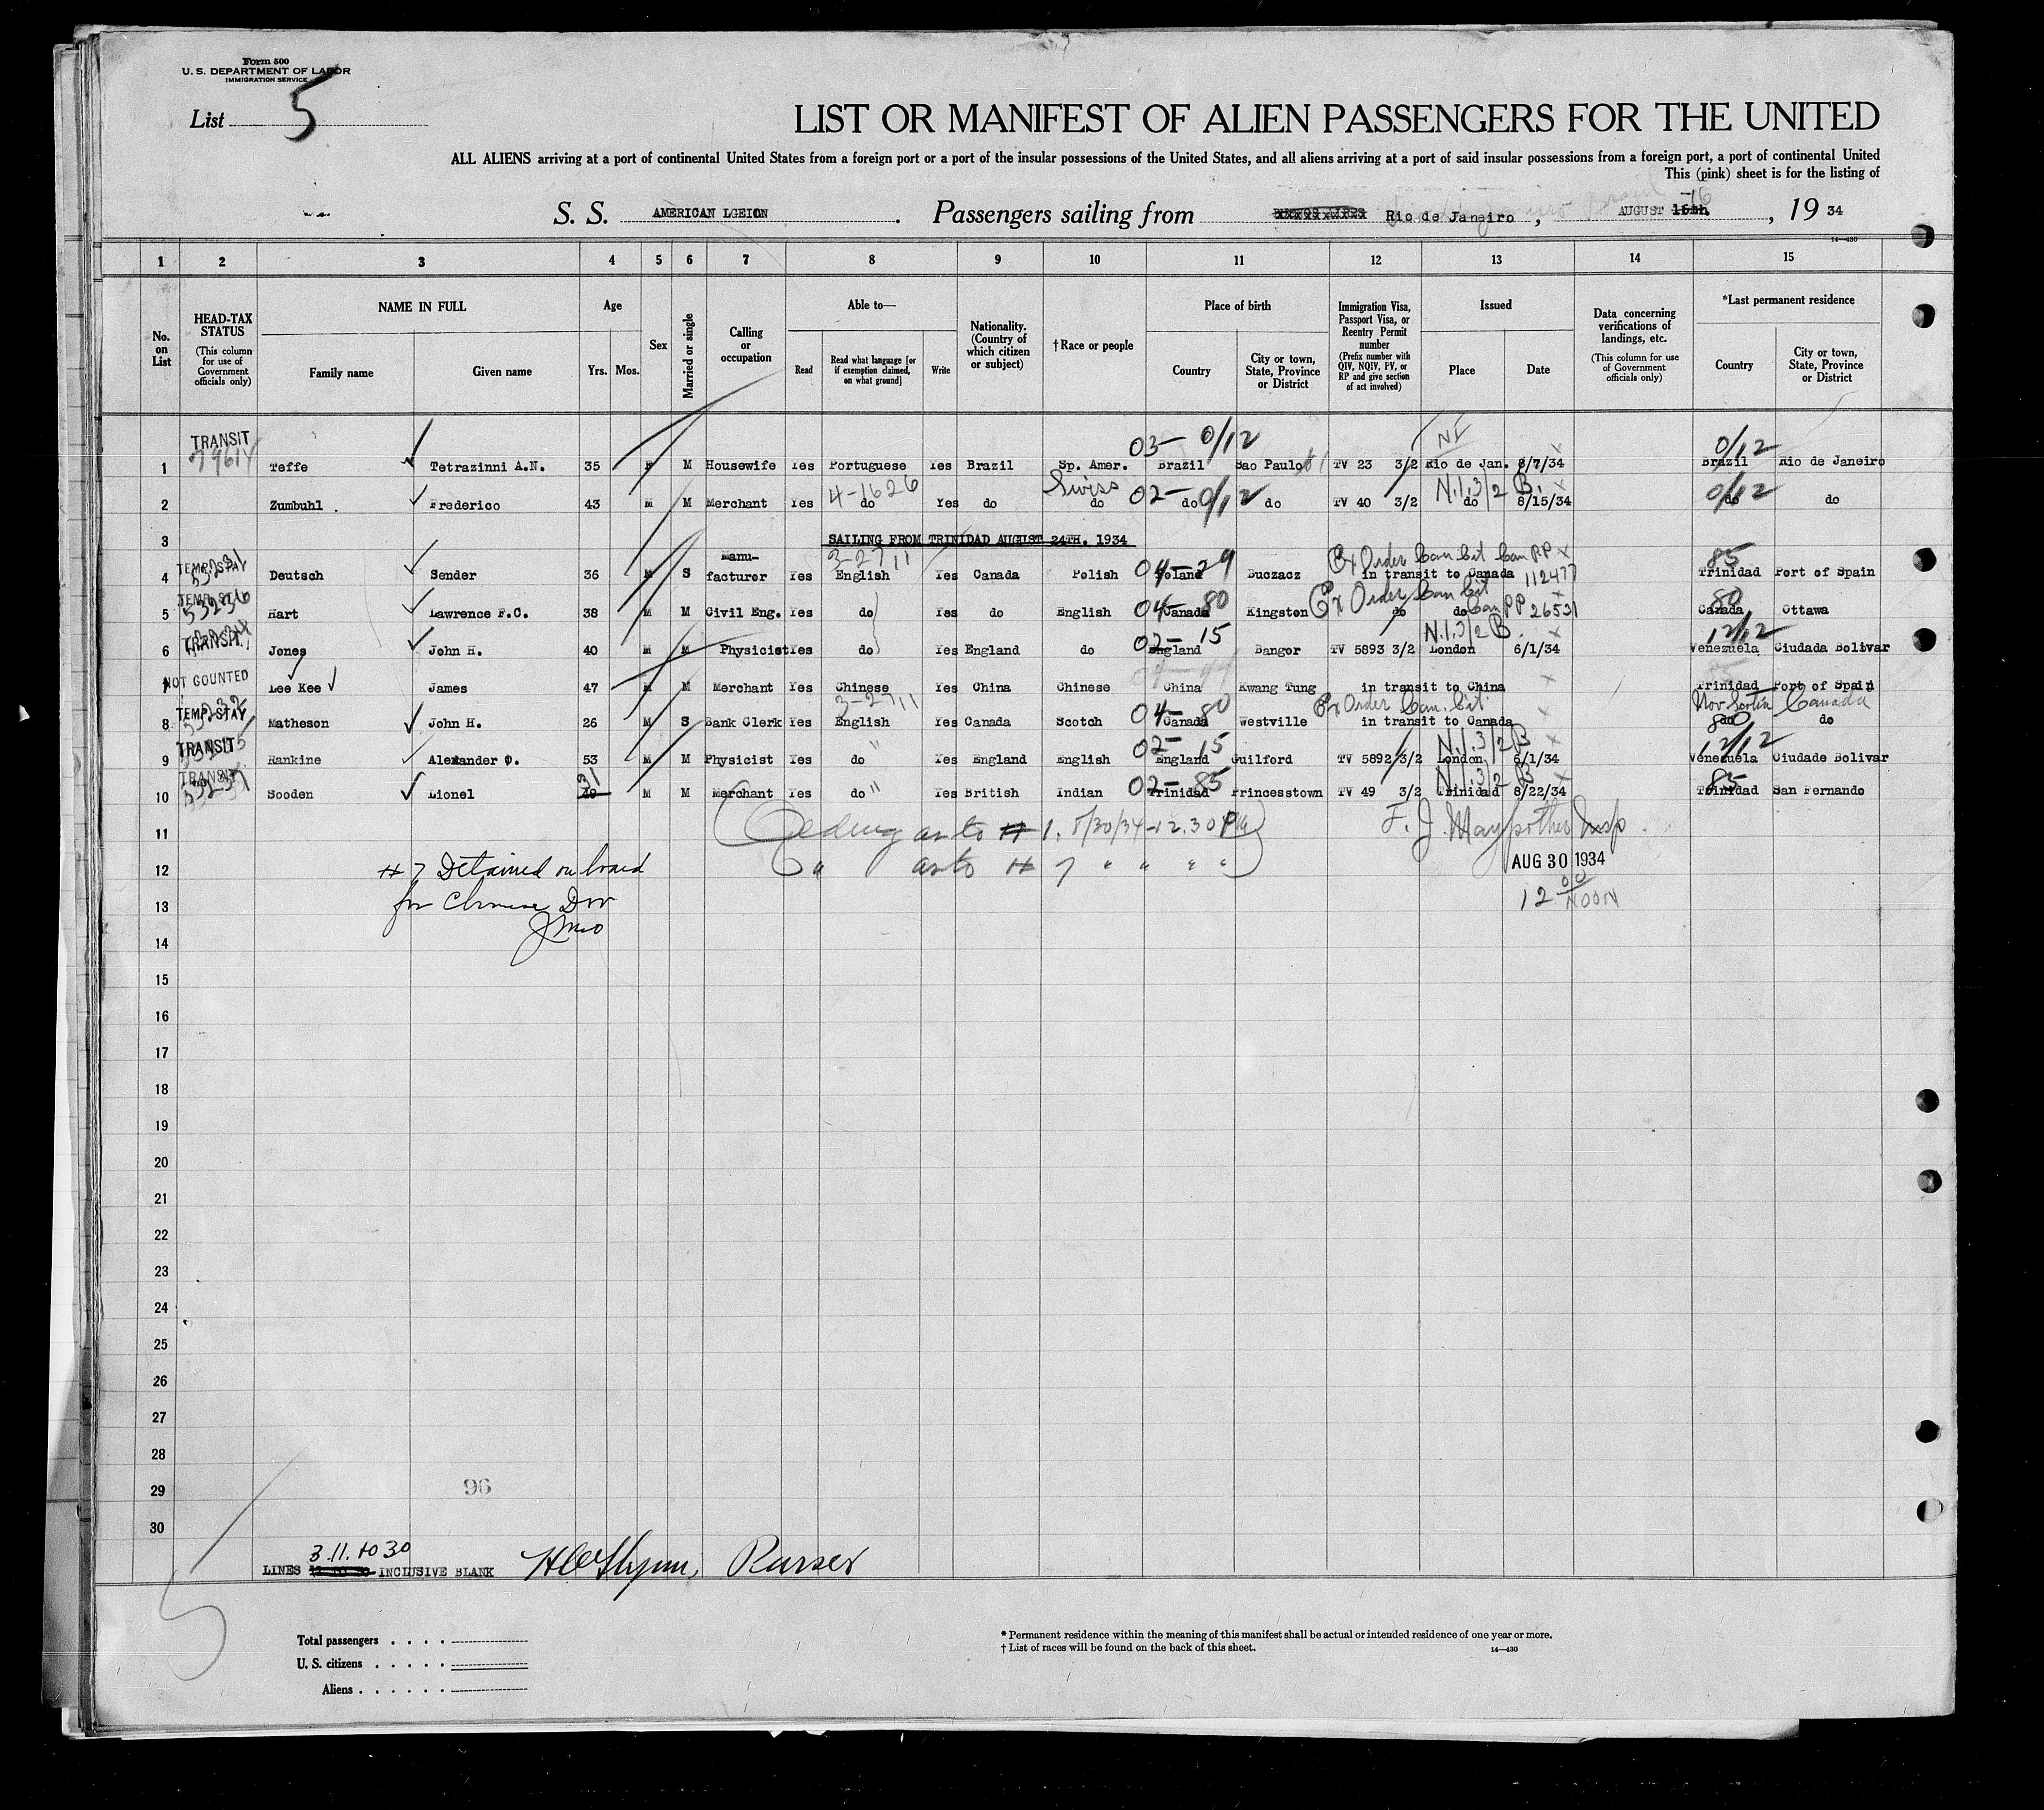 Form 500
U. S. DEPARTMENT OF LABOR
IMMIGRATION SERVICE
List 5
LIST OR MANIFEST OF ALIEN PASSENGERS FOR THE UNITED
ALL ALIENS arriving at a port of continental United States from a foreign port or a port of the insular possessions of the United States, and all aliens arriving at a port of said insular possessions from a foreign port, a port of continental United
This (pink) sheet is for the listing of
S. S. AMERICAN LGEION . Passengers sailing from Rio de Janeiro , AUGUST 16 , 19 34
14—430
1 2 3 4 5 6 7 8 9 10 11 12 13 14 15
No. on List
HEAD-TAX STATUS (This column for use of Government officials only)
NAME IN FULL Family name Given name
Age Yrs. Mos.
Sex
Married or single
Calling or occupation
Able to— Read Read what language [or if exemption claimed, on what ground] Write
Nationality. (Country of which citizen or subject)
†Race or people
Place of birth Country City or town, State, Province or District
Immigration Visa, Passport Visa, or Reentry Permit number (Prefix number with QIV, NQIV, PV, or RP and give section of act involved)
Issued Place Date
Data concerning verifications of landings, etc. (This column for use of Government officials only)
*Last permanent residence Country City or town, State, Province or District
TRANSIT 03- 0/12 0/12
1 Teffe Tetrazinni A.N. 35 F M Housewife Yes Portuguese Yes Brazil Sp. Amer. Brazil Sao Paulo TV 23 3/2 Rio de Jan. 8/7/34 Brazil Rio de Janeiro
4-1626 Swiss 02- 0/12 N.I.3/2 B. 0/12
2 Zumbuhl . Frederico 43 M M Merchant Yes do Yes do do do do TV 40 3/2 do 8/15/34 do do
3 SAILING FROM TRINIDAD AUGUST 24TH. 1934
TEMP. STAY 3-27 11 04-29 Ex Order Can Cit Can PP 112477 85
4 Deutsch Sender 36 M S Manu-facturer Yes English Yes Canada Polish Poland Buczacz in transit to Canada Trinidad Port of Spain
TEMP. STAY 53236 04-80 Ex Order Can Cit Can PP 26531 80
5 Hart Lawrence F.C. 38 M M Civil Eng. Yes do Yes do English Canada Kingston do do Canada Ottawa
TRANSIT 02-15 N.I.3/2 B. 12/12
6 Jones John H. 40 M M Physicist Yes do Yes England do England Bangor TV 5893 3/2 London 6/1/34 Venezuela Ciudada Bolivar
NOT COUNTED
7 Lee Kee James 47 M M Merchant Yes Chinese Yes China Chinese China Kwang Tung in transit to China Trinidad Port of Spain
TEMP. STAY 53232 3-27 11 04-80 Ex Order Can. Cit. Nov Scotia Canada 80
8 Matheson John H. 26 M S Bank Clerk Yes English Yes Canada Scotch Canada Westville in transit to Canada do do
TRANSIT 02-15 N.I.3/2 B 12/12
9 Rankine Alexander O. 53 M M Physicist Yes do " Yes England English England Guilford TV 5892 3/2 London 6/1/34 Venezuela Ciudade Bolivar
TRANSIT 53237 31 02-85 N.I.3/2 B 85
10 Sooden Lionel M M Merchant Yes do " Yes British Indian Trinidad Princesstown TV 49 3/2 Trinidad 8/22/34 Trinidad San Fernando
11 as to # 1. 8/30/34-12.30 PM F. J. Maypother Insp
12 # 7 Detained on board " as to # 7 " " " " AUG 30 1934
13 for Chinese Div 12 00 NOON
14
15
16
17
18
19
20
21
22
23
24
25
26
27
28
29 96
30
3.11. to 30
LINES INCLUSIVE BLANK Purser
Total passengers . . . .
U. S. citizens . . . . .
Aliens . . . . . .
* Permanent residence within the meaning of this manifest shall be actual or intended residence of one year or more.
† List of races will be found on the back of this sheet. 14—430